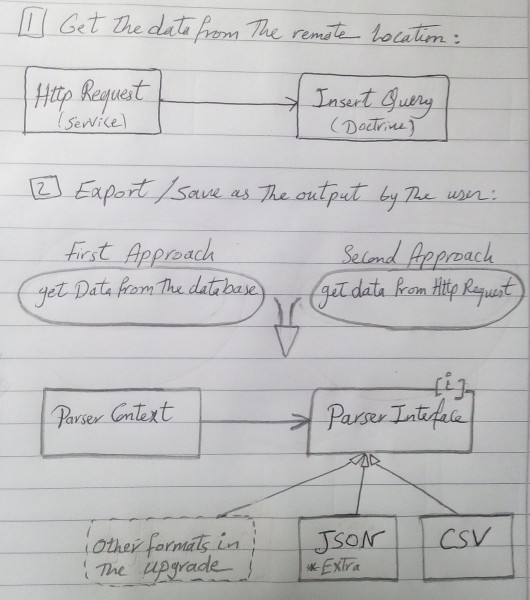 1 Get The data from The remote location:
Http Request
(Service)
Insert Query
(Doctrine)
2 Export / Save as The output by The user:
First Approach
get Data from The database
Second Approach
get data from Http Request
[i]
Parser Context
Parser Interface
Other formats in
The upgrade
JSON
*Extra
CSV